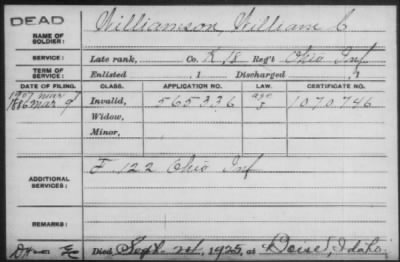 DEAD
NAME OF SOLDIER: Williamson, William C
SERVICE: Late rank, Co. K 18 Reg't Ohio Inf
TERM OF SERVICE: Enlisted , 1 Discharged , 1
DATE OF FILING. CLASS. APPLICATION NO. LAW. CERTIFICATE NO.
1907 Mar
1886 Mar 9 Invalid, 565336 1070746
Widow,
Minor,
ADDITIONAL SERVICES: F 122 Ohio Inf
REMARKS:
Died Sept. 21, 1925, at Boise, Idaho